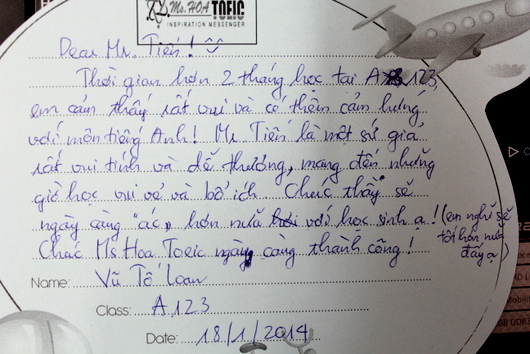 Ms. HOA TOEIC
INSPIRATION MESSENGER
Dear Mr. Tiến!
Thời gian hơn 2 tháng học tại A 123,
em cảm thấy rất vui và có thêm cảm hứng
với môn tiếng Anh! Mr Tiến là một sứ giả
rất vui tính và dễ thương, mang đến những
giờ học vui vẻ và bổ ích. Chúc thầy sẽ
ngày càng "ác" hơn nữa với học sinh ạ! (em nghĩ sẽ
tốt hơn nữa
đấy ạ)
Chúc Ms Hoa Toeic ngày càng thành công!
Name: Vũ Tố Loan
Class: A 123
Date: 18/1/2014